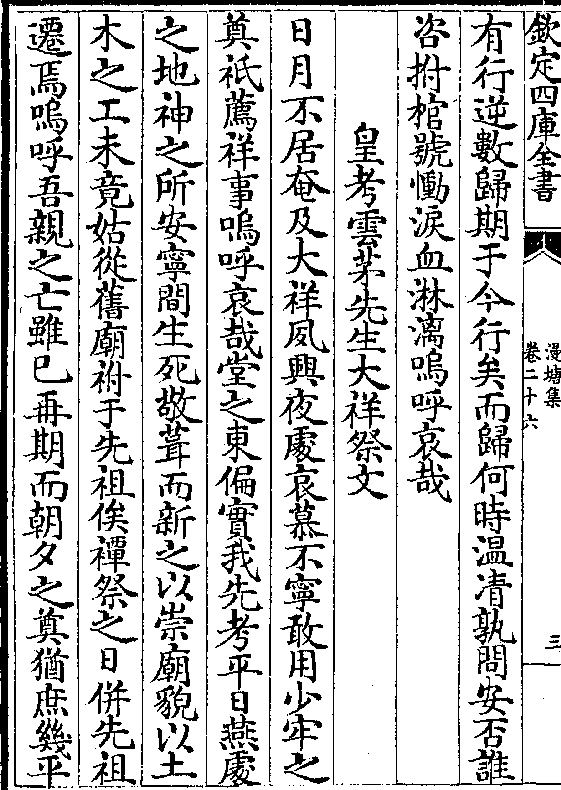 欽定四庫全書
漫塘集
卷二十六
三
有行逆數歸期于今行矣而歸何時温凊孰問安否誰
咨拊棺號慟淚血淋漓嗚呼哀哉
皇考雲茅先生大祥祭文
日月不居奄及大祥夙興夜處哀慕不寧敢用少牢之
奠祗薦祥事嗚呼哀哉堂之東偏實我先考平日燕處
之地神之所安寧間生死敬葺而新之以崇廟貌以土
木之工未竟姑從舊廟祔于先祖俟禫祭之日併先祖
遷焉嗚呼吾親之亡雖已再期而朝夕之奠猶庶幾平